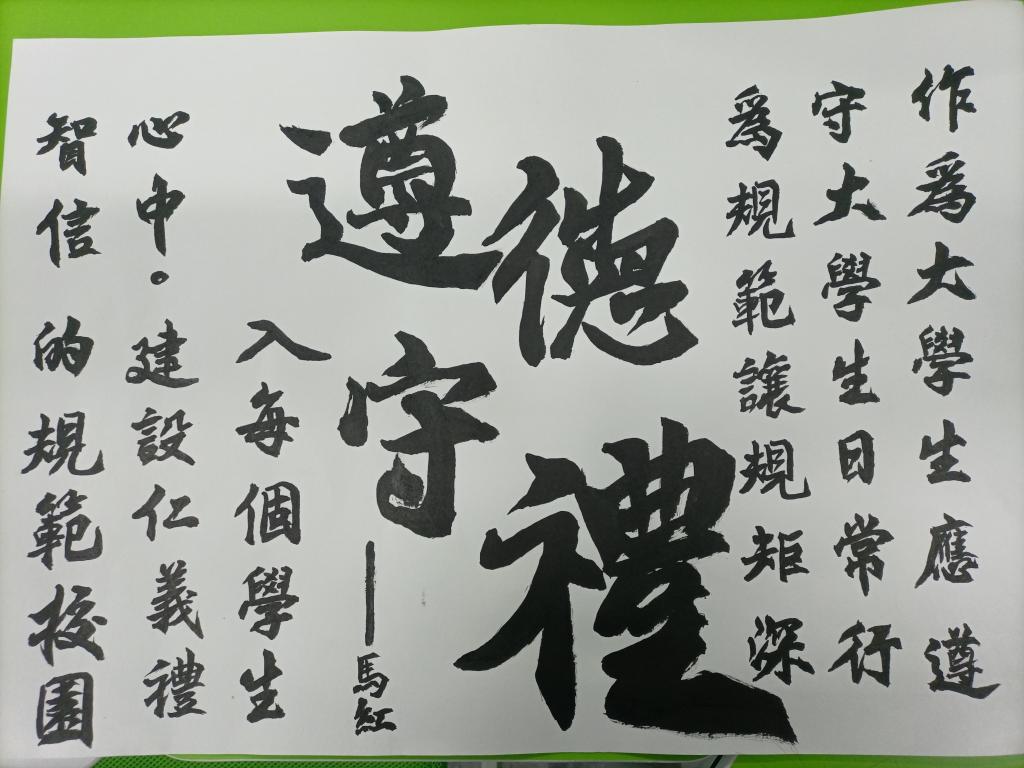 作爲大學生應遵
守大學生日常行
爲規範讓規矩深
德禮
遵守
——馬紅
入每個學生
心中。建設仁義禮
智信的規範校園